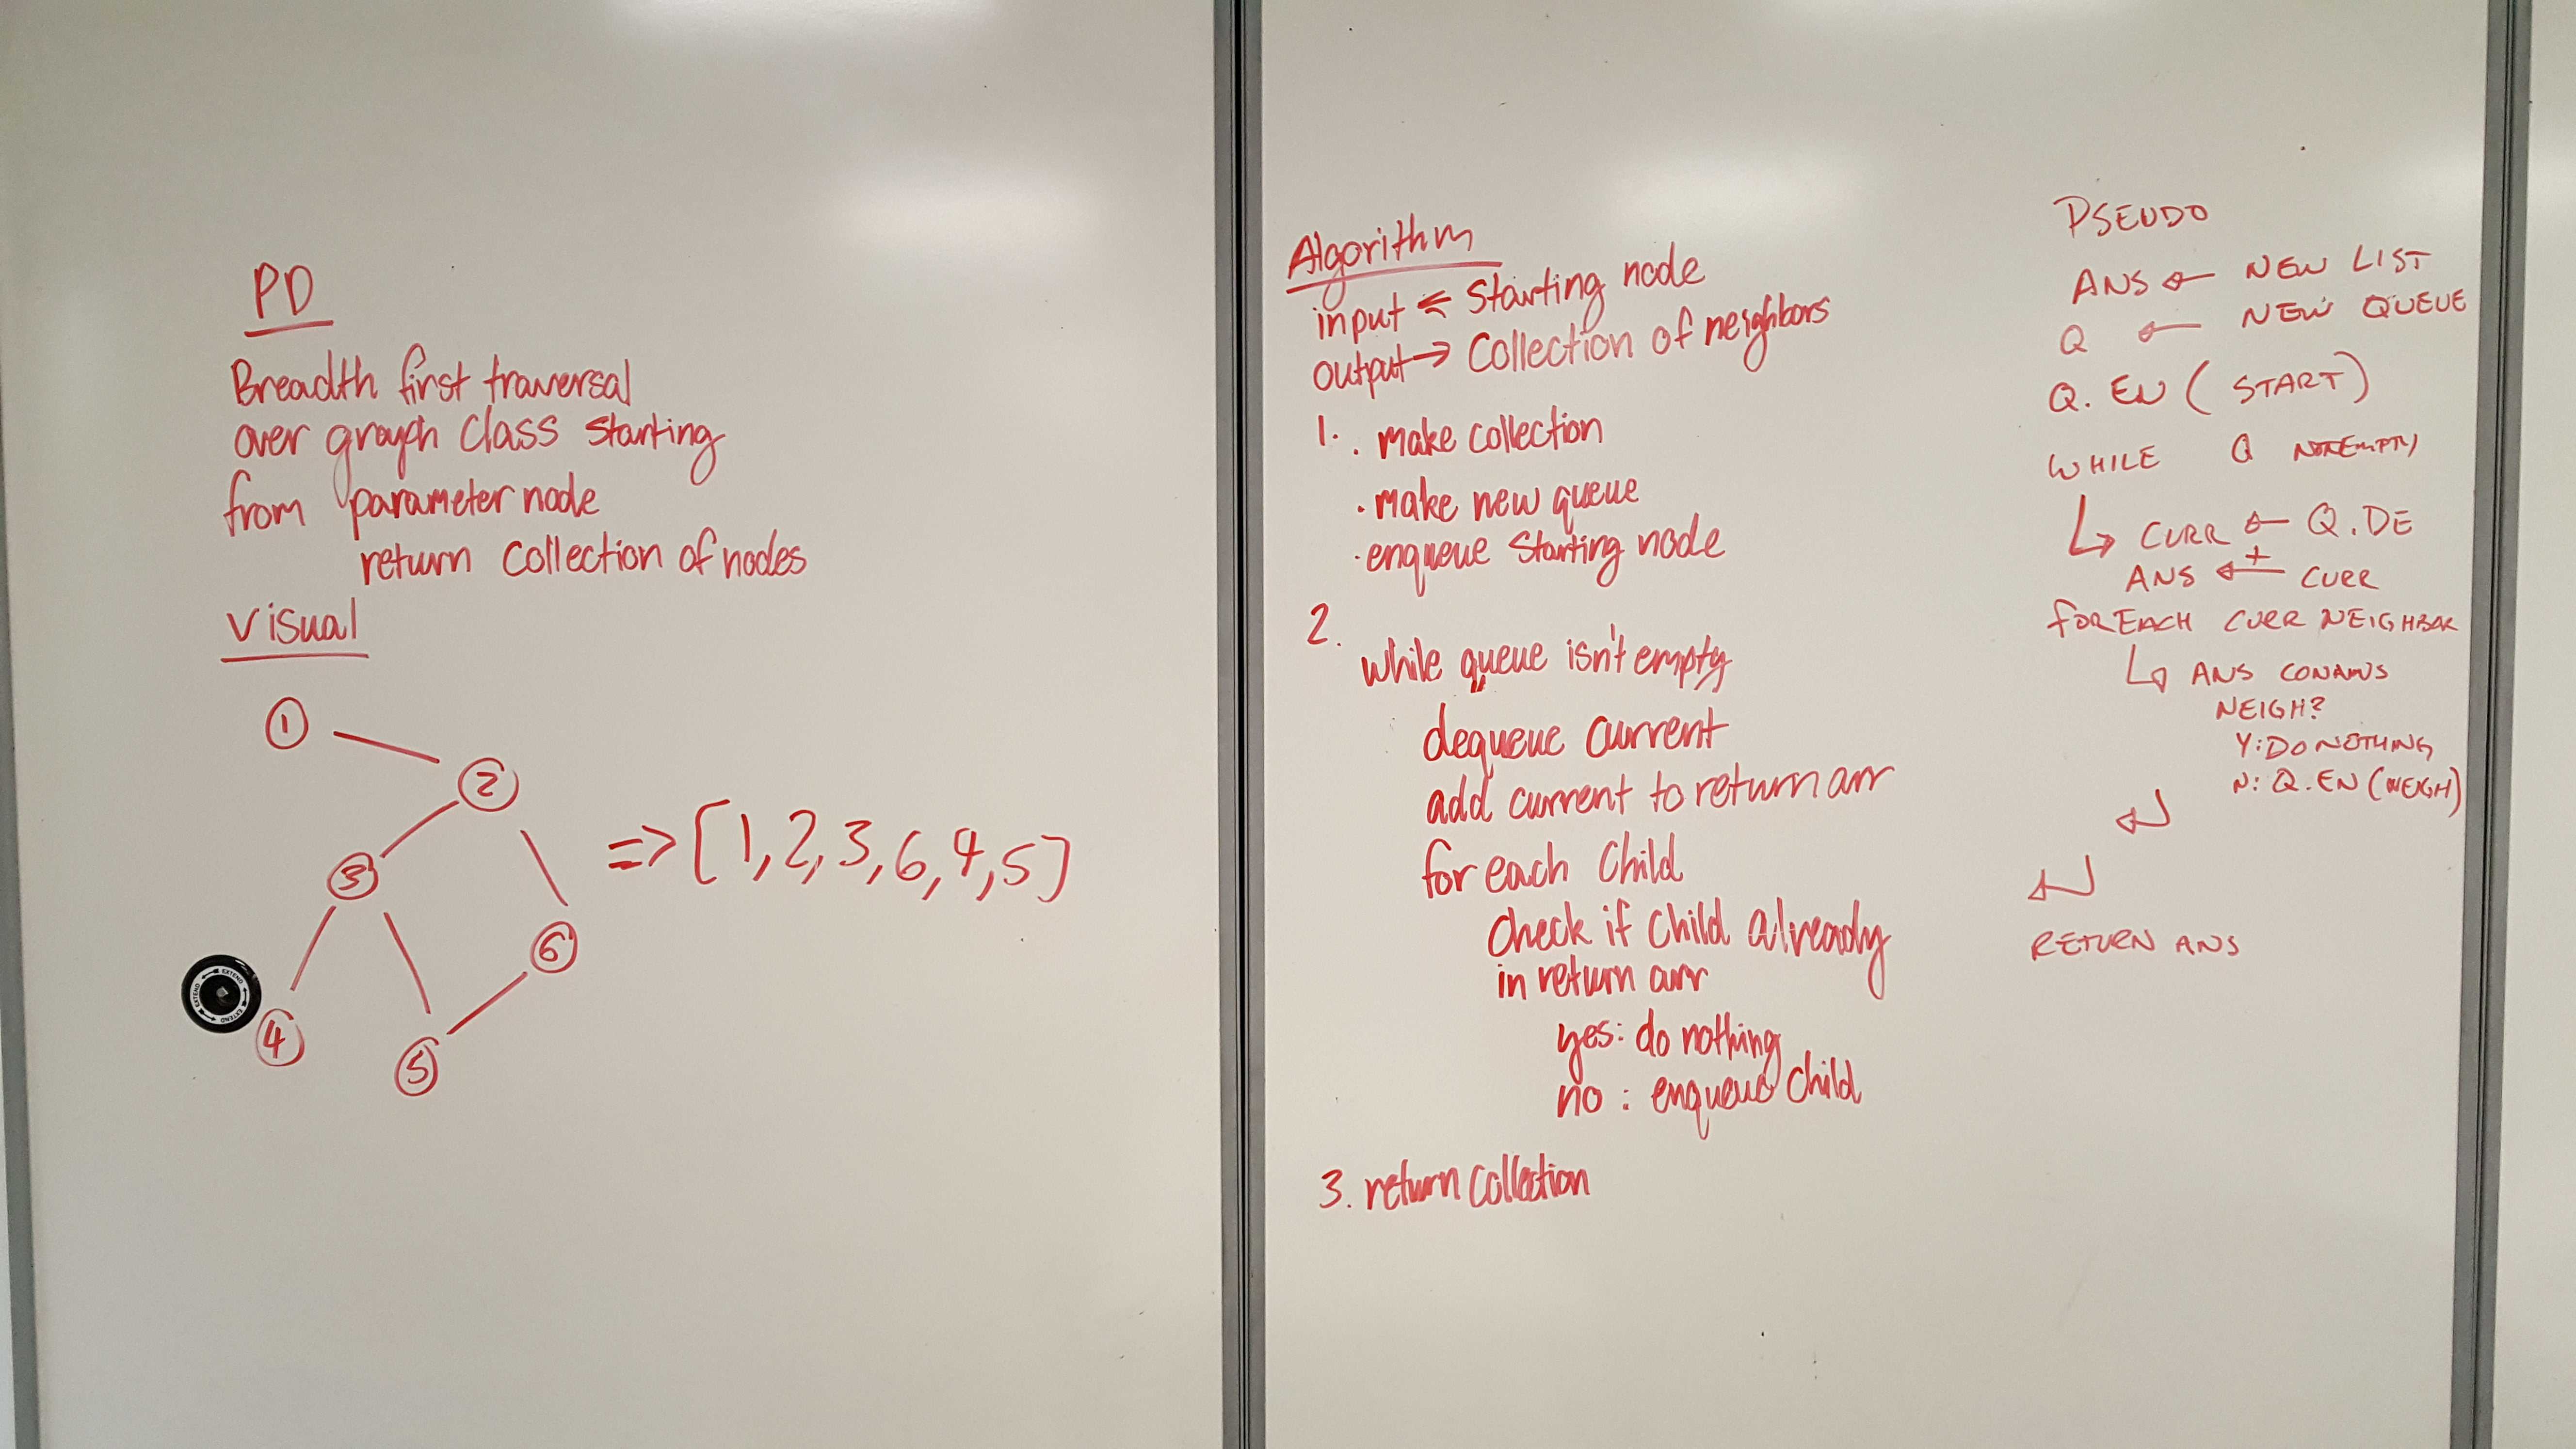 PD
Breadth first traversal
over graph class starting
from parameter node
return collection of nodes
Visual
1
2
3
6
4
5
=> [1,2,3,6,4,5]
EXTEND EXTEND EXTEND EXTEND
Algorithm
input ← starting node
output → collection of neighbors
1. . make collection
. make new queue
. enqueue starting node
2.
while queue isn't empty
dequeue current
add current to return arr
for each child
check if child already
in return arr
yes: do nothing
no : enqueue child
3. return collection
PSEUDO
ANS ← NEW LIST
Q ← NEW QUEUE
Q. EN ( START )
WHILE Q NOT EMPTY
↳ CURR ← Q.DE
ANS ←+ CURR
FOREACH CURR NEIGHBOR
↳ ANS CONAINS
NEIGH?
Y: DO NOTHING
N: Q.EN (NEIGH)
↵
↵
RETURN ANS